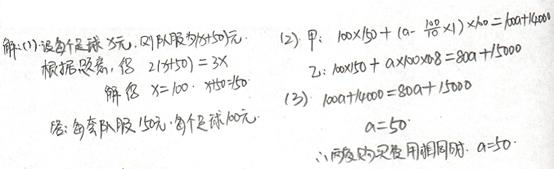 解:(1)设每个足球x元,则队服为(x+50)元.
根据题意,得 2(x+50)=3x
解得 x=100. x+50=150
答:每套队服150元,每个足球100元.
(2) 甲: 100×150+(a-100/10×1)×100=100a+14000
乙: 100×150+a×100×0.8=80a+15000
(3) 100a+14000=80a+15000
a=50.
∴两家购买费用相同时. a=50.